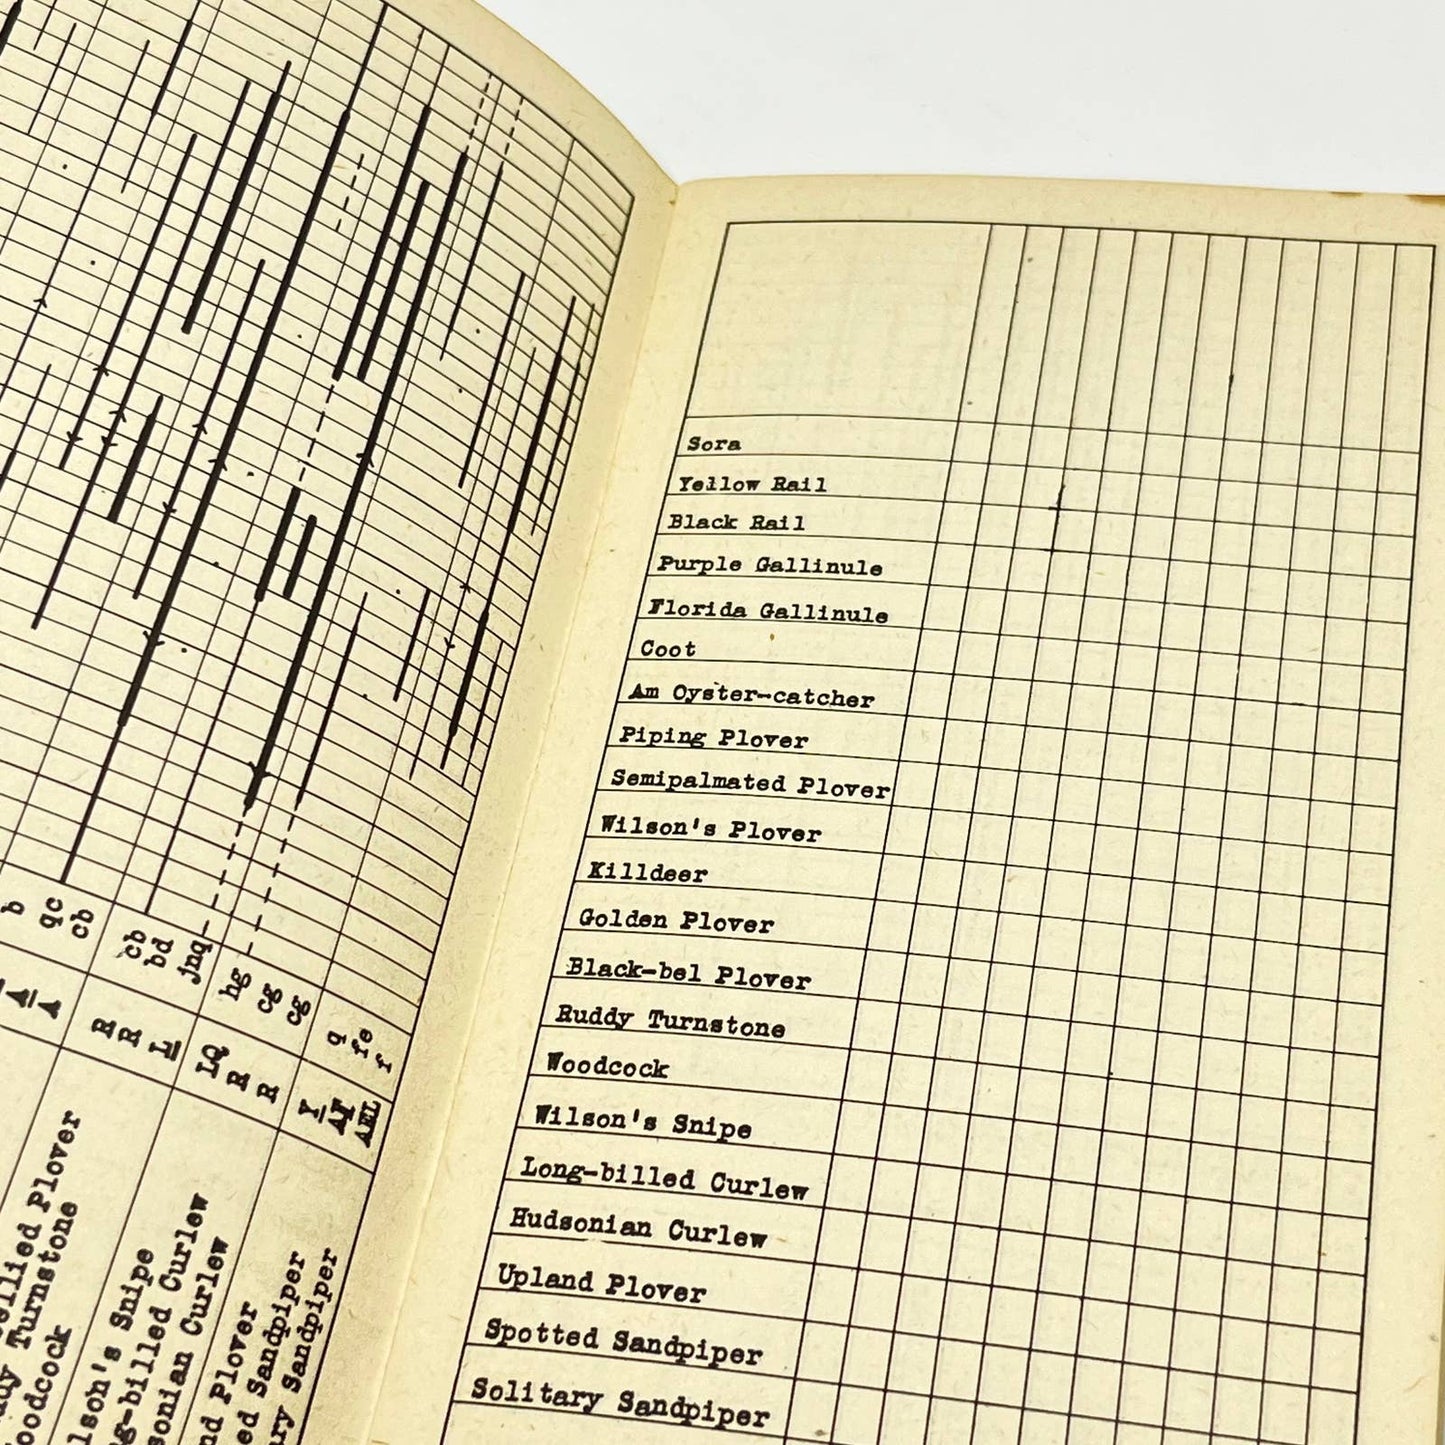 b
qc
cb
cb
bd
jnq
hg
cg
cg
q
fe
f
A
A
R
R
L
LQ
R
R
Y
AF
AEL
Plover
Turnstone
Snipe
Curlew
Curlew
Plover
Sandpiper
Sandpiper
Sora
Yellow Rail
Black Rail
Purple Gallinule
Florida Gallinule
Coot
Am Oyster-catcher
Piping Plover
Semipalmated Plover
Wilson's Plover
Killdeer
Golden Plover
Black-bel Plover
Ruddy Turnstone
Woodcock
Wilson's Snipe
Long-billed Curlew
Hudsonian Curlew
Upland Plover
Spotted Sandpiper
Solitary Sandpiper